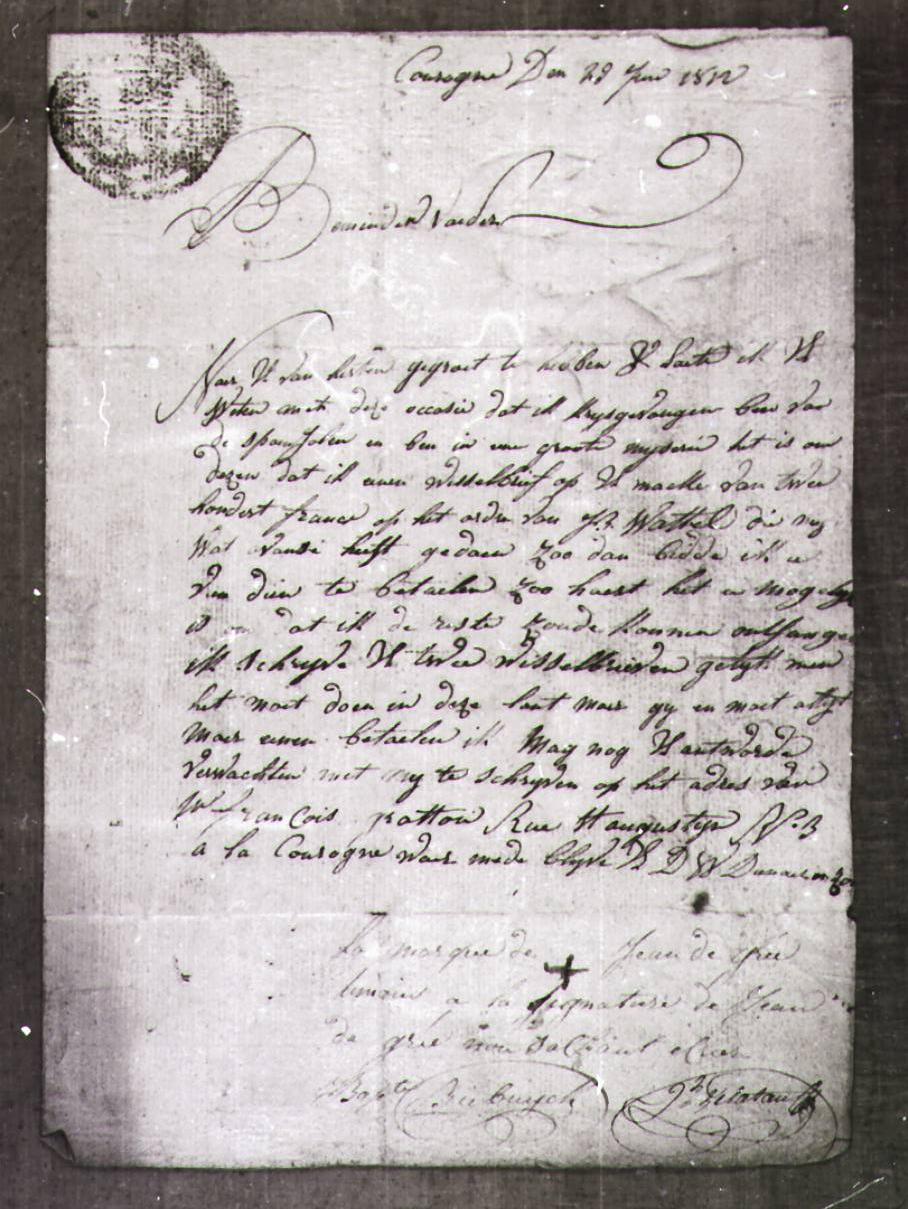 Courogne Den 28 Juni 1812
Beminden Vaeder
Naer U van herten gegroet te hebben Y Laete ik U
Weten met deze occasie dat ik krysgevangen ben van
de spanjolen en ben in eene groote myserie het is om
dezen dat ik eenen wisselbrief op U maekte van twee
hondert francs op het order van J.B. Wattel die my
Wat avansi heeft gedaen zoo dan bidde ik u
van dien te betaelen zoo haest het u mogelyk
is om dat ik de reste zoude konnen ontfangen
ik schryve U twee wisselbrieven gelyk men
het moet doen in deze lant maer gy en moet altyt
maer eenen betaelen ik mag nog U antworde
verwachten met my te schryven op het adres van
Mr françois frattou Rue St augustyn No. 3
a la Courogne waer mede blyve U D W Dienaer en zoon
La marque de + Jean de Grie
temoin a la signature de Jean
de grie non sachant ecrire
Bapte Biebuyck